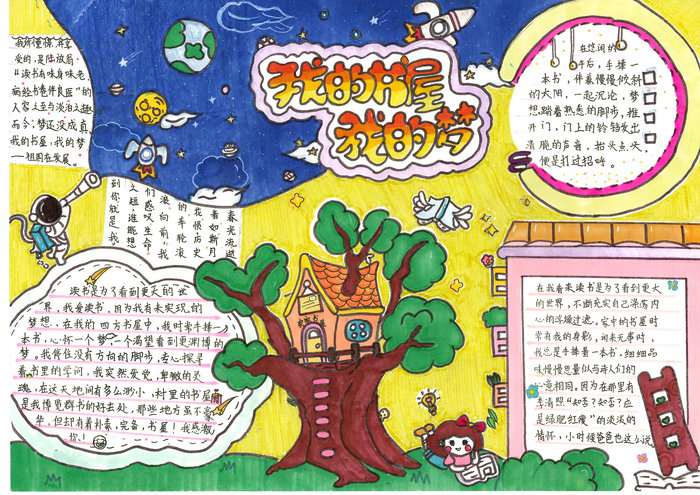 我的书屋
我的梦
我所懂你，喜
爱的，是陆放翁
“读书有味身味老，
病经书卷作良医”的
人
而今，梦还没成真，
我的书屋，我的梦
祖国在发展
在悠闲的
午后，手捧一
本书，伴着慢慢倾斜
的太阳，一起沉论，梦
想踏着熟悉的脚步，推
开门，门上的铃铛发出
清脆的声音，抬头点头
便是打过招呼。
春光流逝
看如新月
花恨，历史
的车轮滚
滚向前，我
们感叹生命
之短，谁能想
到你就是我
读书是为了看到更大的世
界，我爱读书，因为我有未实现的
梦想。在我的四方书屋中，我时常手捧一
本书，心怀一个梦，一个渴望看到更渊博的
梦。我停住没有方向的脚步，专心探寻
着书里的学问，我突然发觉，卑微的灵
魂，在这天地间有多么渺小，村里的书屋
是我博览群书的好去处，那些地方虽不豪
华，但却有着朴素，完备，书屋！我感激
你！
在我看来读书是为了看到更大
的世界，不断充实自己荡涤内
心的浮燥过滤。家中的书屋时
常有我的身影，闲来无事时，
我总是手捧着一本书，细细品
味慢慢思量似与诗人们的
心意相同，因为在那里有
李清照“知否？知否？应
是绿肥红瘦”的淡淡的
情怀，小时候爸爸也这么说